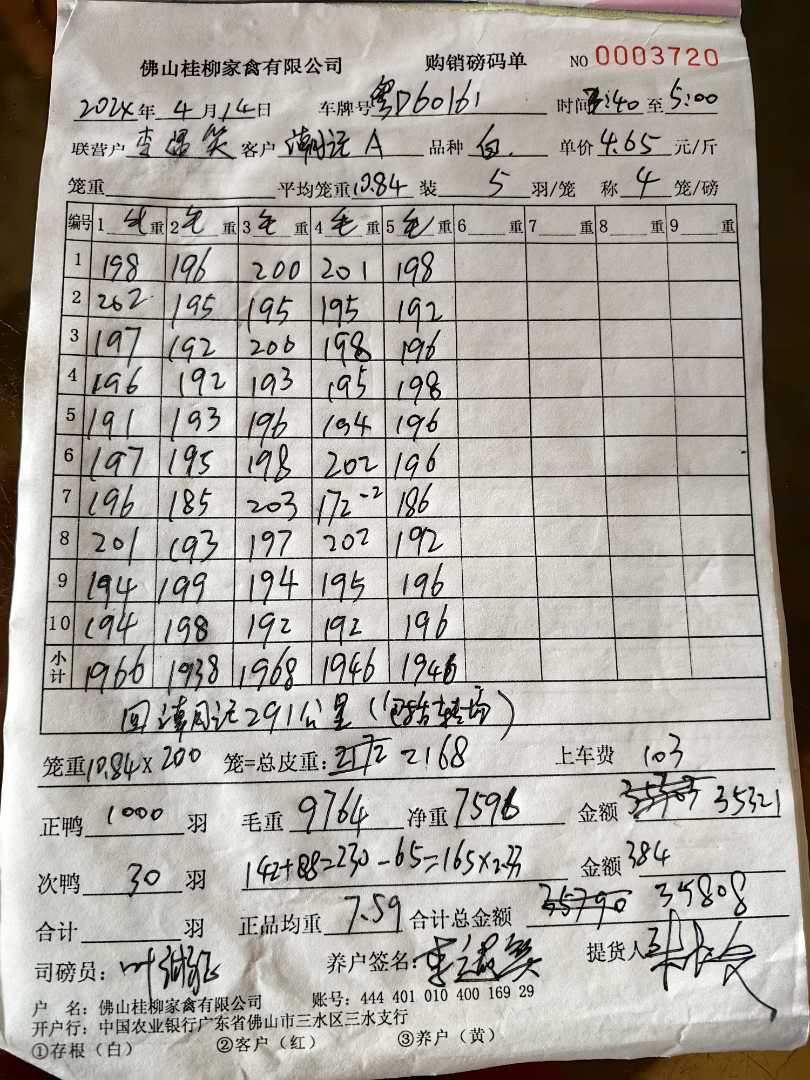 佛山桂柳家禽有限公司 购销磅码单 NO 0003720
2024年 4月14日 车牌号 粤D60161 时间 3:40 至 5:00
联营户 李 笑 客户 潮周记 A 品种 白. 单价 4.65 元/斤
笼重 平均笼重 10.84 装 5 羽/笼 称 4 笼/磅
编号 1 毛 重 2 毛 重 3 毛 重 4 毛 重 5 毛 重 6 重 7 重 8 重 9 重
1 198 196 200 201 198
2 202 195 195 195 192
3 197 192 200 198 196
4 196 192 193 195 198
5 191 193 196 194 196
6 197 195 198 202 196
7 196 185 203 172-2 186
8 201 193 197 202 192
9 194 199 194 195 196
10 194 198 192 192 196
小计 1966 1938 1968 1946 1946
回潮周记291公里(包括转场)
笼重10.84×200 笼=总皮重: 2168 上车费 103
正鸭 1000 羽 毛重 9764 净重 7596 金额 35321
次鸭 30 羽 142+88=230-65=165×2.33 金额 384
合计 羽 正品均重 7.59 合计总金额 35790 35808
司磅员: 叶 养户签名: 李 笑 提货人
户 名: 佛山桂柳家禽有限公司 账号: 444 401 010 400 169 29
开户行: 中国农业银行广东省佛山市三水区三水支行
①存根(白) ②客户(红) ③养户(黄)